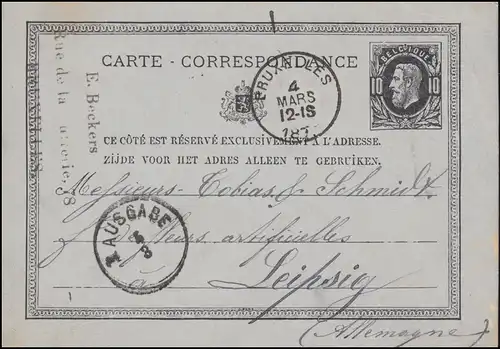 BELGIQUE
10 10
CARTE - CORRESPONDANCE
BRUXELLES
4
MARS
12-1S
187
CE CÔTÉ EST RÉSERVÉ EXCLUSIVEMENT A L'ADRESSE.
ZIJDE VOOR HET ADRES ALLEEN TE GEBRUIKEN.
E. Beckers
Rue de la
BRUXELLES
Messieurs Tobias & Schmidt
fleurs artificielles
à Leipzig
(Allemagne)
AUSGABE
5
3